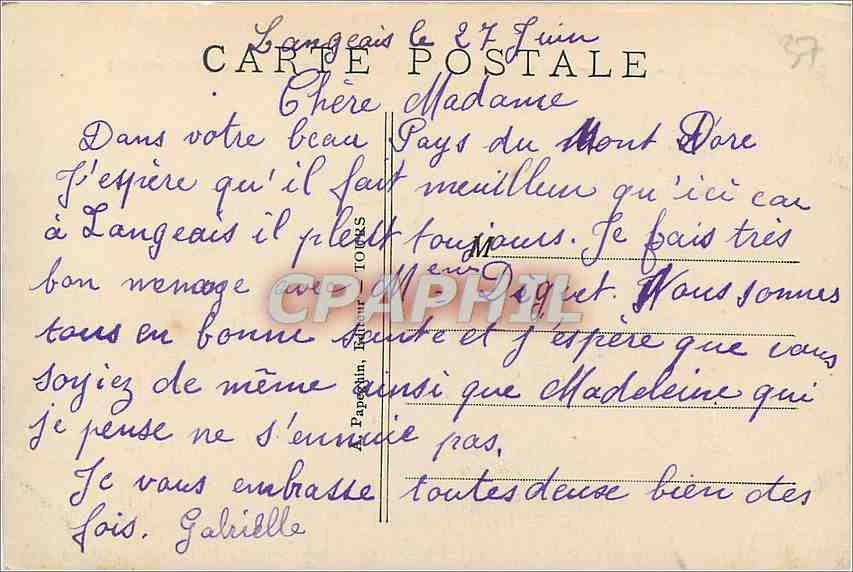 Langeais le 27 Juin
37
CARTE POSTALE
Chère Madame
Dans votre beau Pays du Mont Dore
J'espère qu'il fait meuilleur qu'ici car
à Langeais il pleut toujours. Je fais très
M
bon menage avec Meur Diguet. Nous sonnes
tous en bonne santé et j'espère que vous
soyiez de même ainsi que Madeleine qui
je pense ne s'ennuie pas.
Je vous embrasse toutes deuse bien des
fois. Gabrielle
A. Papeghin, Editeur - TOURS
CPAPHIL